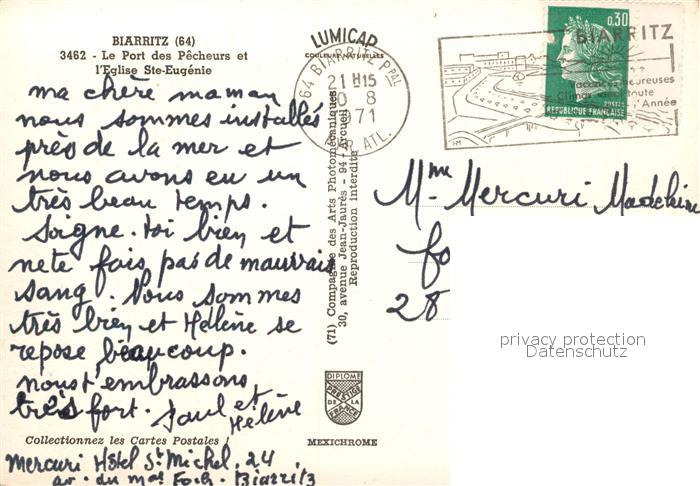 BIARRITZ (64)
3462 - Le Port des Pêcheurs et
l'Eglise Ste-Eugénie
ma chère maman
nous sommes installés
près de la mer et
nous avons eu un
très beau temps.
Soigne-toi bien et
ne te fais pas de mauvais
sang. Nous sommes
très bien et Hélène se
repose beaucoup.
nous t'embrassons
très fort. Paul et
Hélène
Collectionnez les Cartes Postales !
Mercuri Hôtel St Michel. 24
av. du mal Foch. Biarritz
LUMICAP
COULEURS NATURELLES
64 BIARRITZ PPAL
21 H15
10 8
1971
PYR ATL.
(71) Compagnie des Arts Photomécaniques
30, avenue Jean-Jaurès - 94 - Arcueil
Reproduction interdite
DIPLOME
PRESTIGE
DE LA
FRANCE
MEXICHROME
0,30
BIARRITZ
Vacances heureuses
Climat
l'Année
POSTES
REPUBLIQUE FRANÇAISE
Mme Mercuri Madeleine
28
privacy protection
Datenschutz